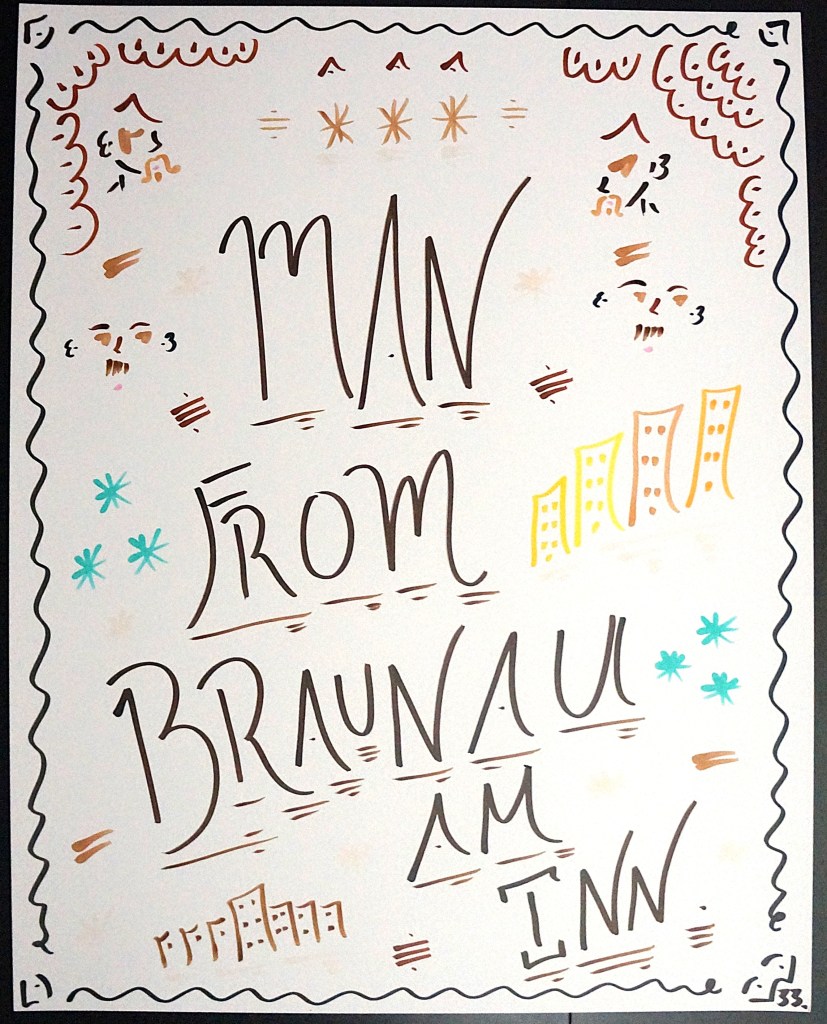 MAN
FROM
BRAUNAU
AM
INN.
33.